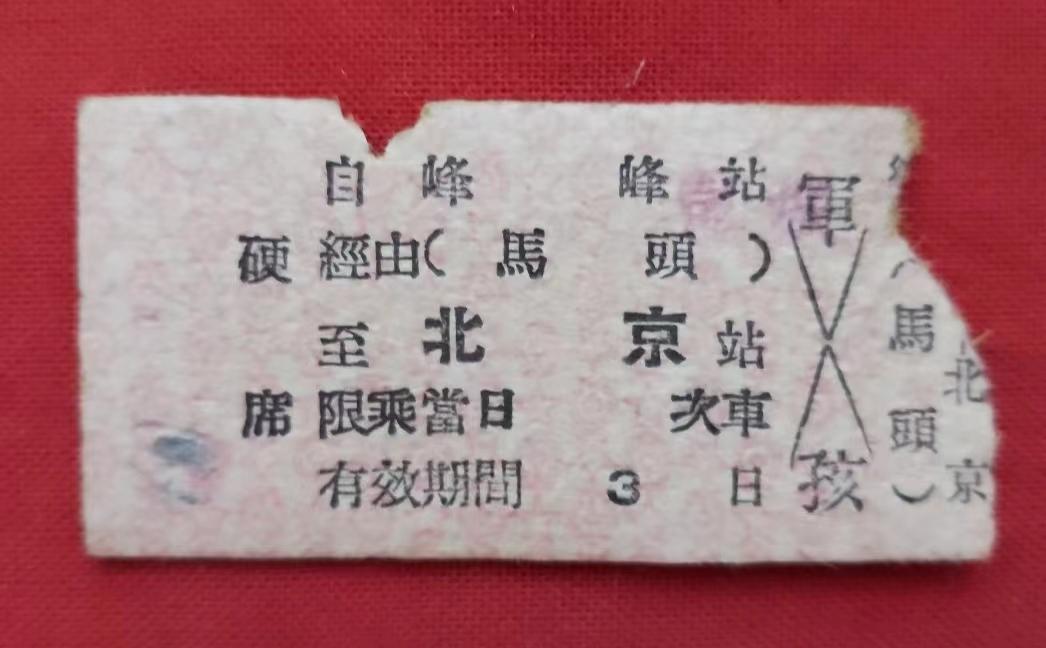 自峰峰站
硬 經由(馬頭)
至北京站
席 限乘當日 次車
有效期間 3 日
軍
孩
(馬頭)
北京